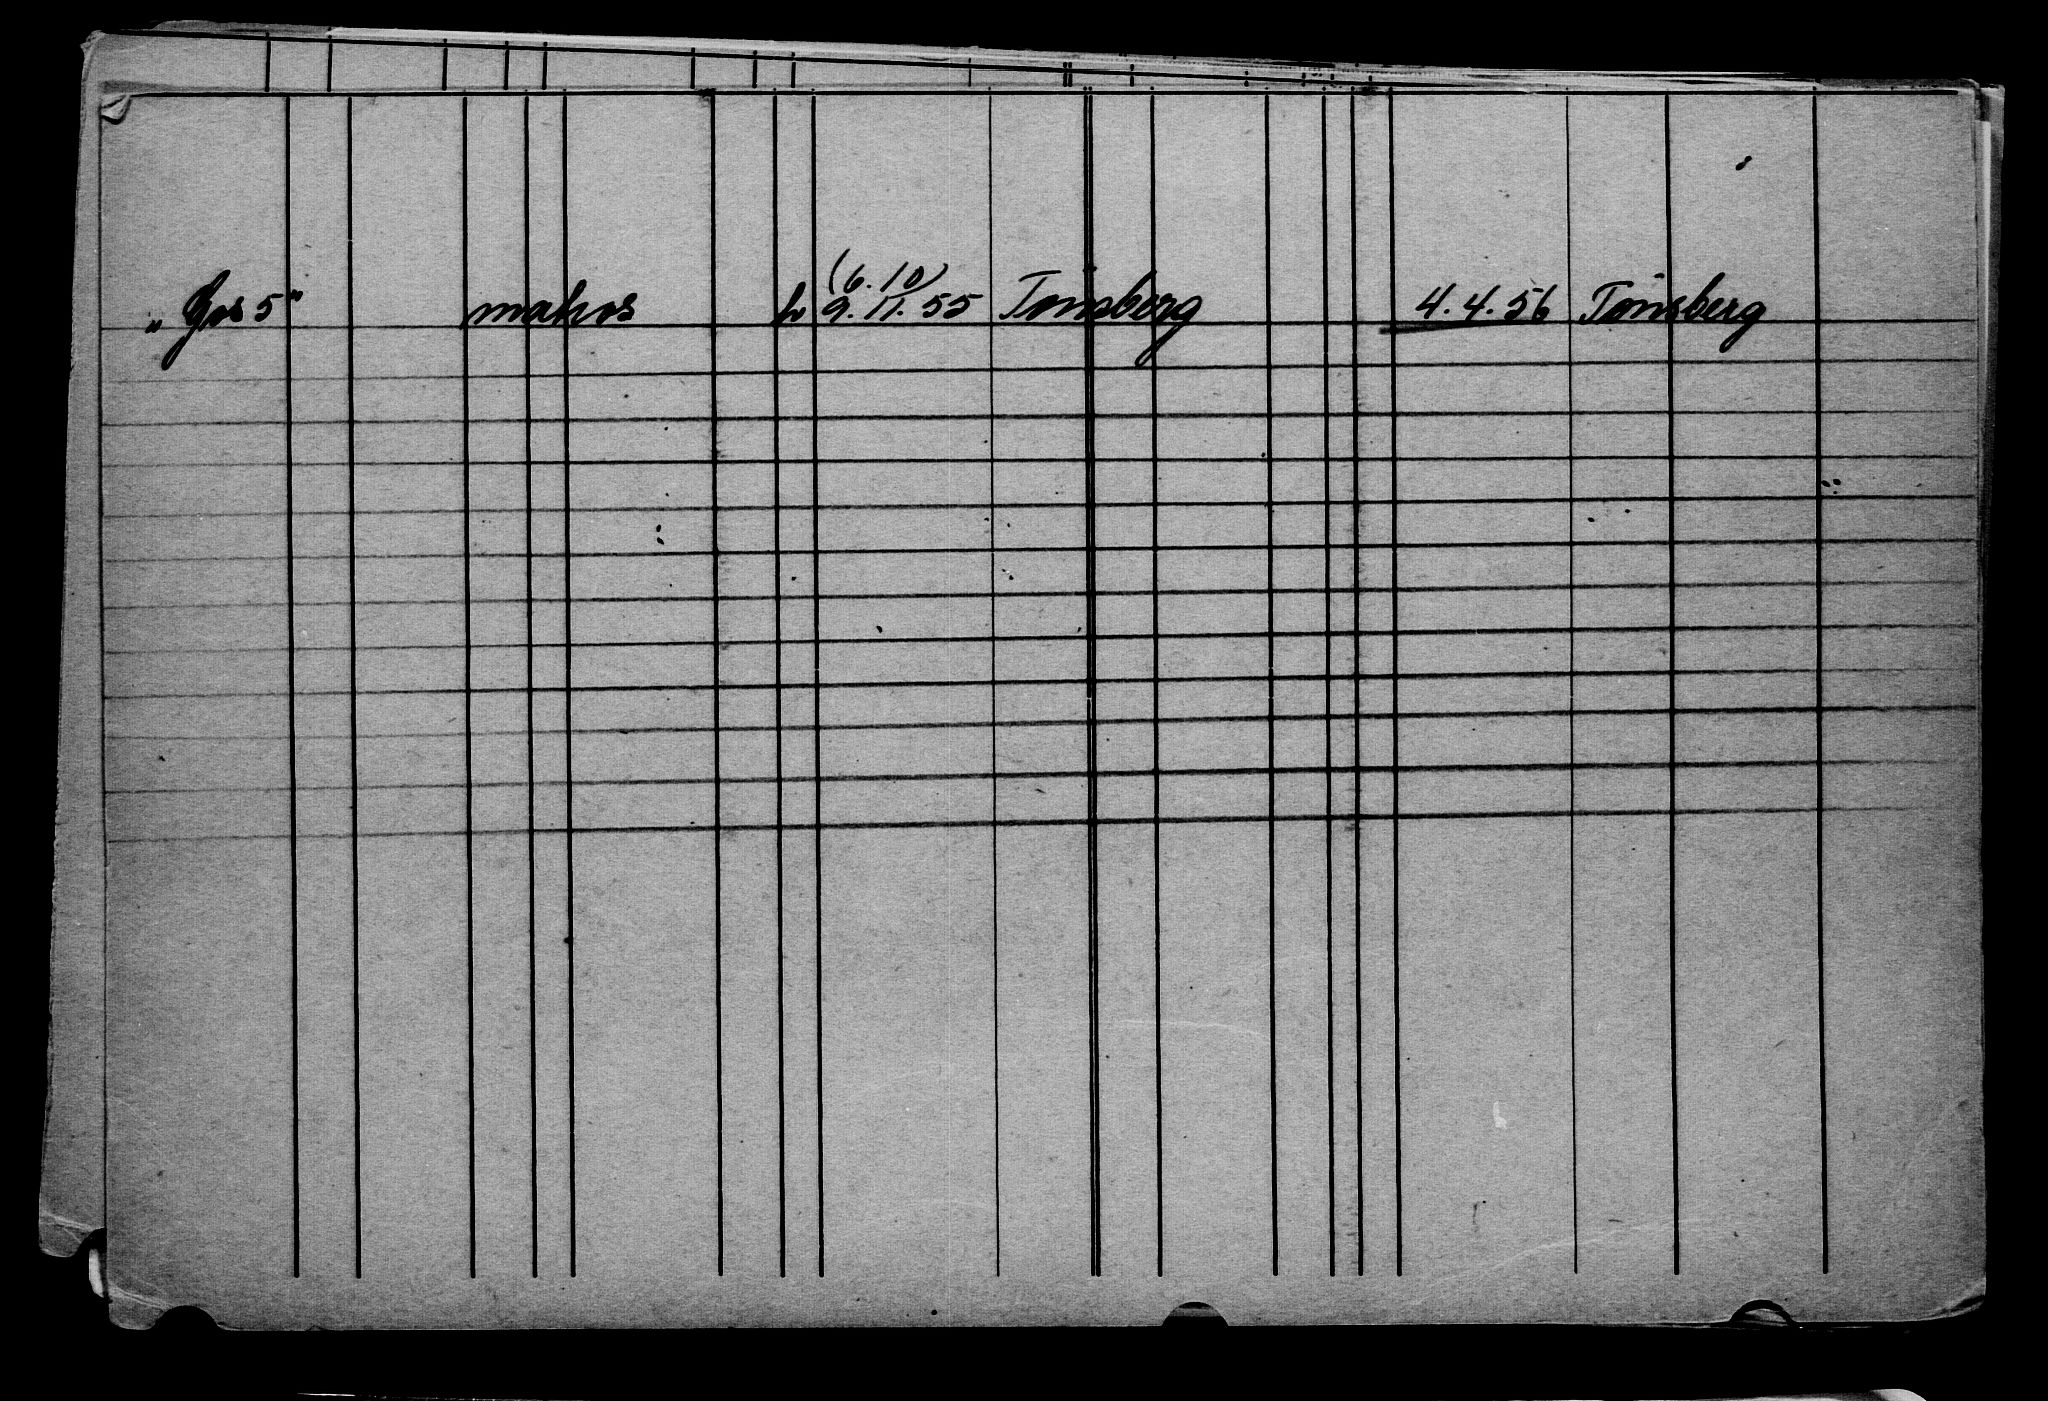 (6.10)
„Gos 5” matros h 9.11.55 Tønsberg 4.4.56 Tønsberg